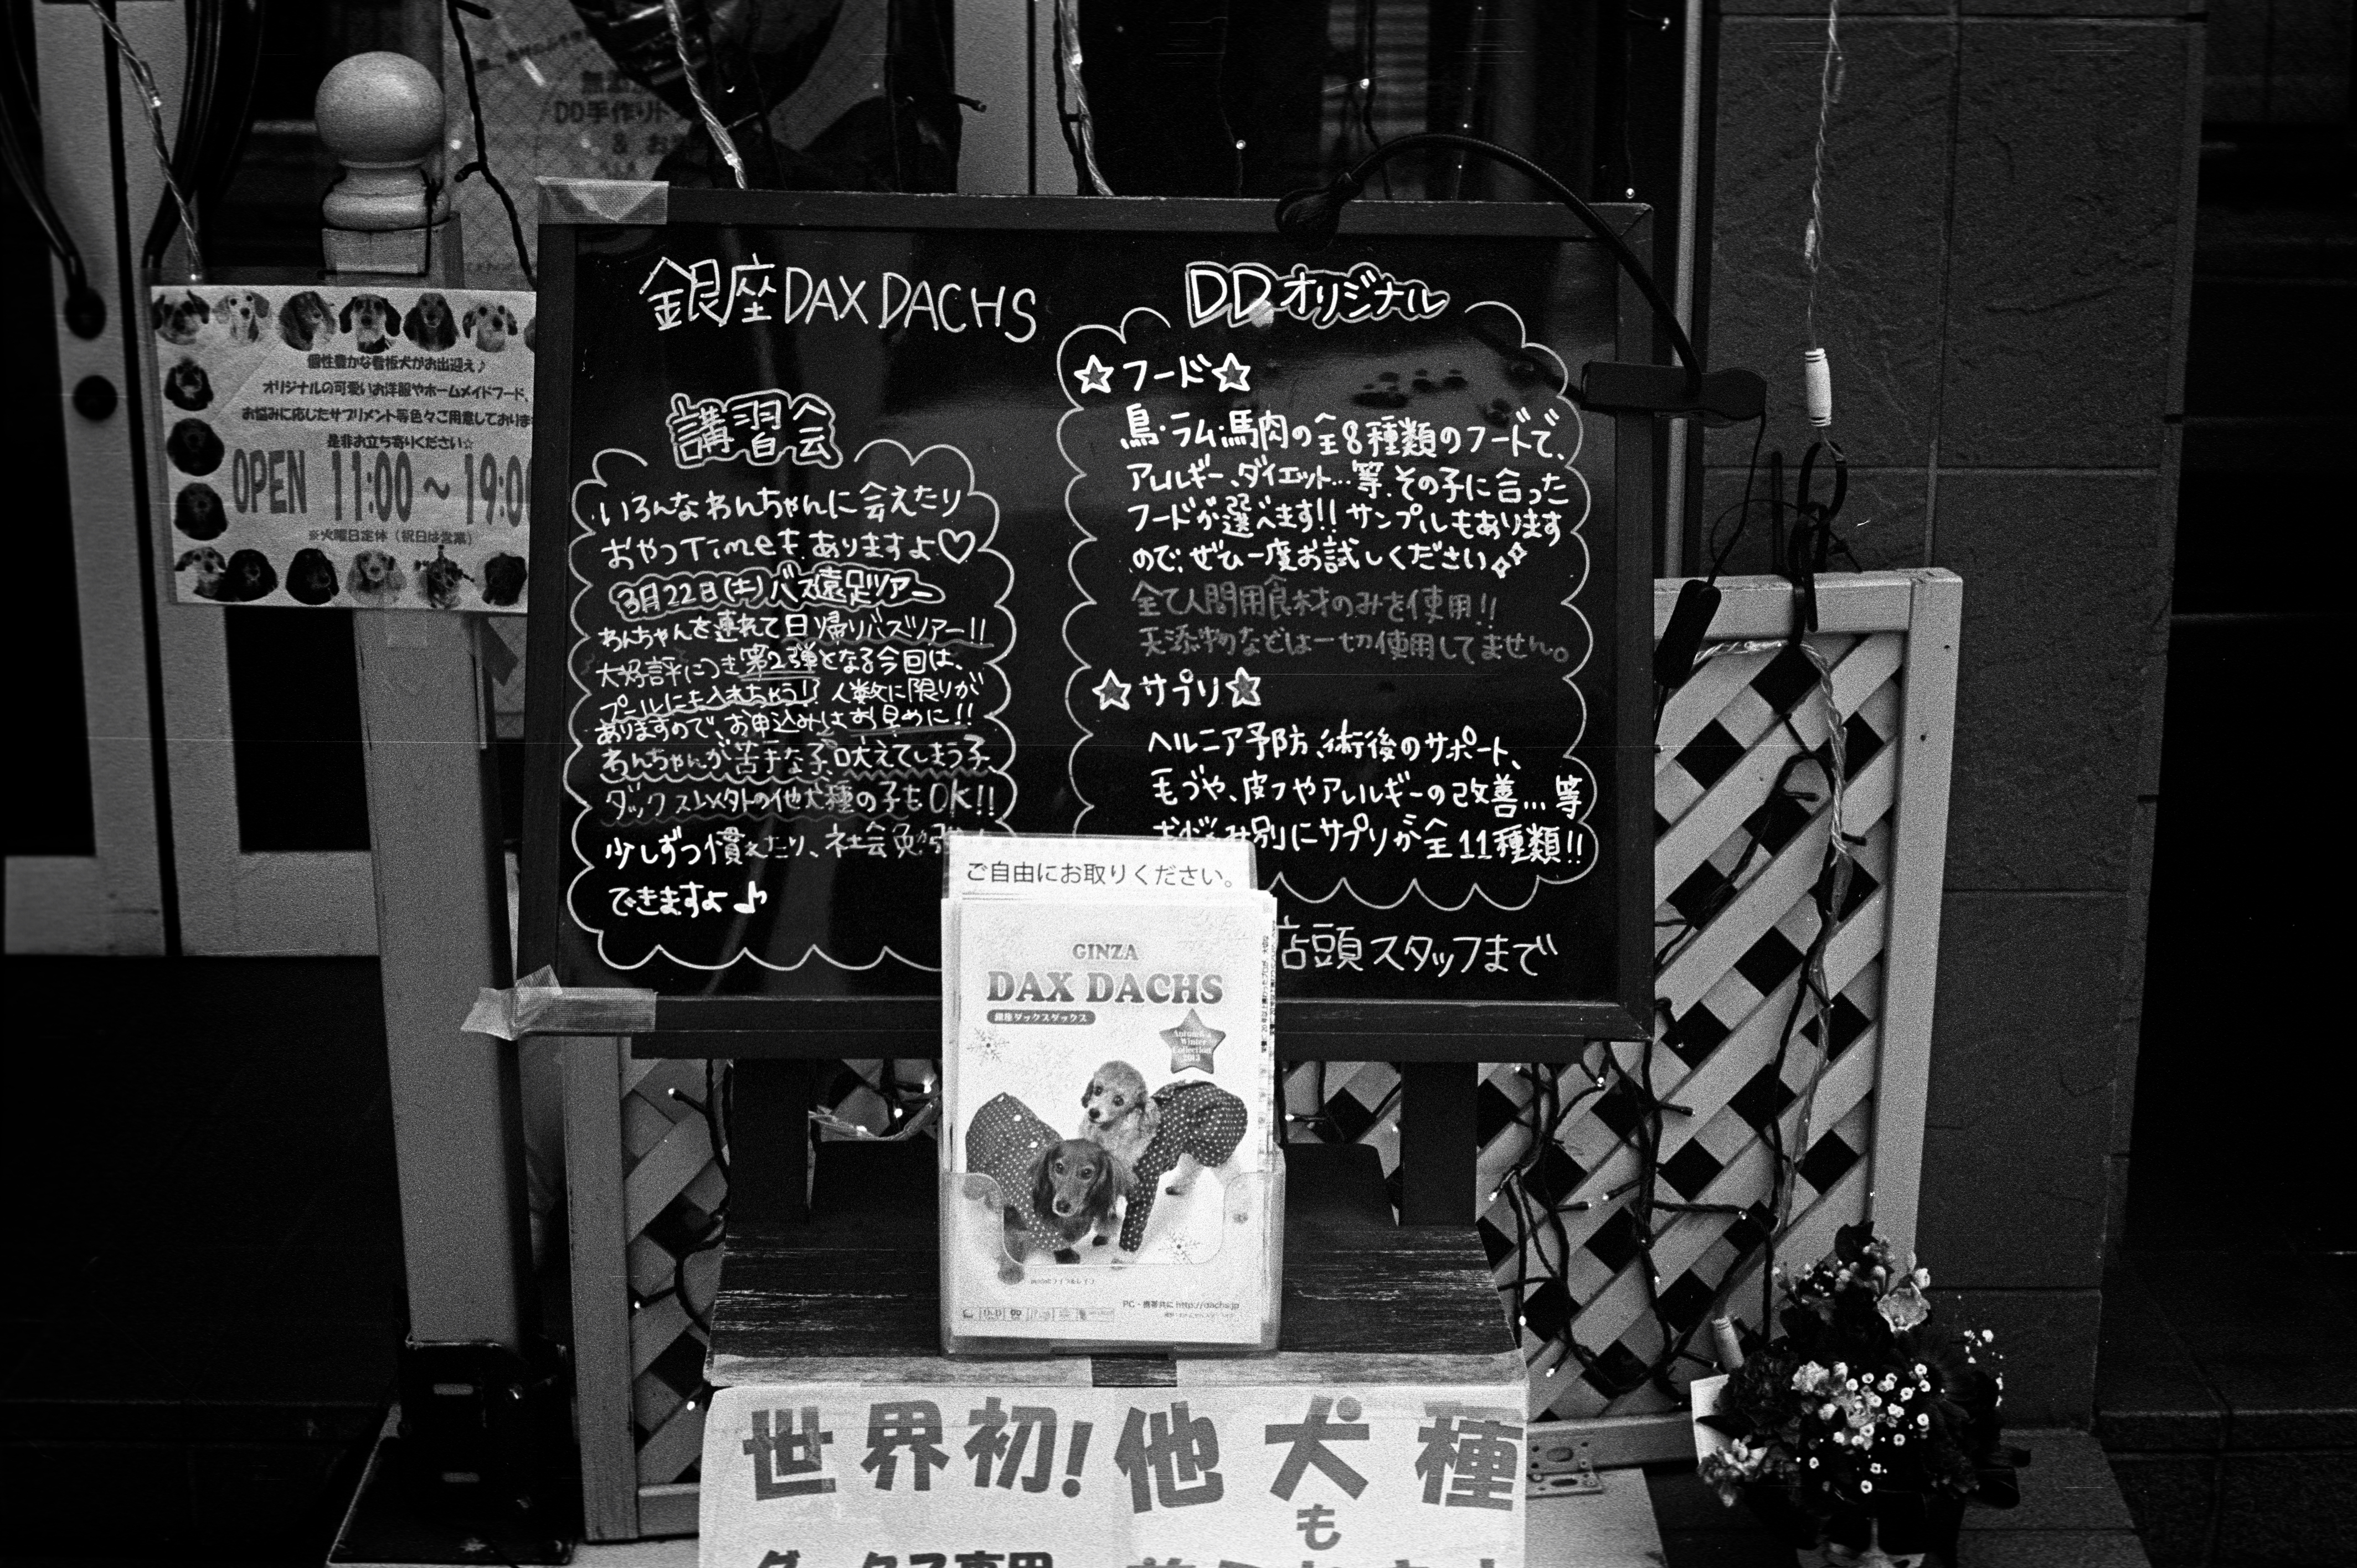 DD手作り
& お
個性豊かな看板犬がお出迎え♪
オリジナルの可愛いお洋服やホームメイドフード、
お悩みに応じたサプリメント等色々ご用意しておりま
是非お立ち寄りください☆
OPEN 11:00〜19:00
※火曜日定休（祝日は営業）
銀座DAX DACHS
講習会
いろんなわんちゃんに会えたり
おやつTimeもありますよ♡
3月22日(土)バス遠足ツアー
わんちゃんを連れて日帰りバスツアー!!
大好評につき第2弾となる今回は、
プールにも入れちゃう!? 人数に限りが
ありますので、お申込みはお早めに!!
わんちゃんが苦手な子、吠えてしまう子、
ダックス以外の他犬種の子もOK!!
少しずつ慣れたり、社会勉強
できますよ♪
DDオリジナル
☆フード☆
鳥・ラム・馬肉の全8種類のフードで、
アレルギー、ダイエット…等、その子に合った
フードが選べます!! サンプルもあります
ので、ぜひ一度お試しください
全て人間用食材のみを使用!!
添物などは一切使用してません。
☆サプリ☆
ヘルニア予防、術後のサポート、
毛づや、皮フやアレルギーの改善…等
お悩み別にサプリが全11種類!!
店頭スタッフまで
ご自由にお取りください。
GINZA
DAX DACHS
銀座ダックスダックス
Autumn & Winter Collection 2013
PC・携帯共に http://dachs.jp
世界初! 他犬種
も
ダックス専用